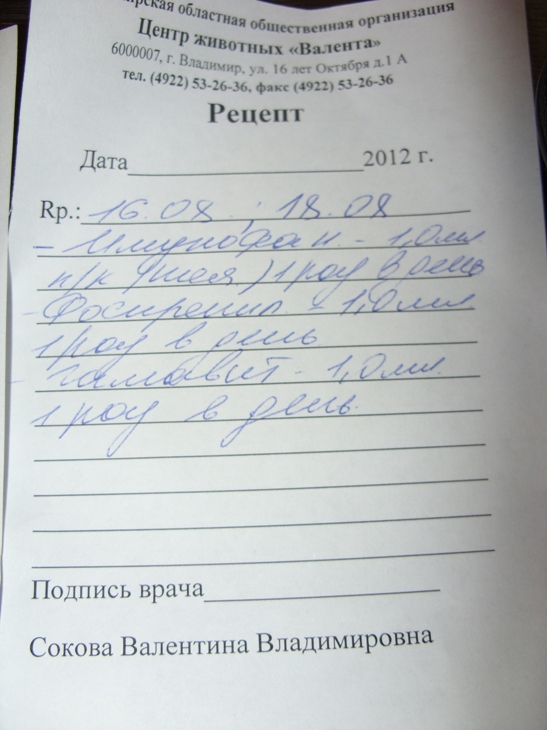 ирская областная общественная организация
Центр животных «Валента»
6000007, г. Владимир, ул. 16 лет Октября д.1 А
тел. (4922) 53-26-36, факс (4922) 53-26-36
Рецепт
Дата 2012 г.
Rp.: 16.08 ; 18.08
- Имунофан - 1,0 мл
п/к (шея) 1 раз в день
- Фоспренил - 1,0 мл
1 раз в день
- гамавит - 1,0 мл.
1 раз в день.
Подпись врача
Сокова Валентина Владимировна